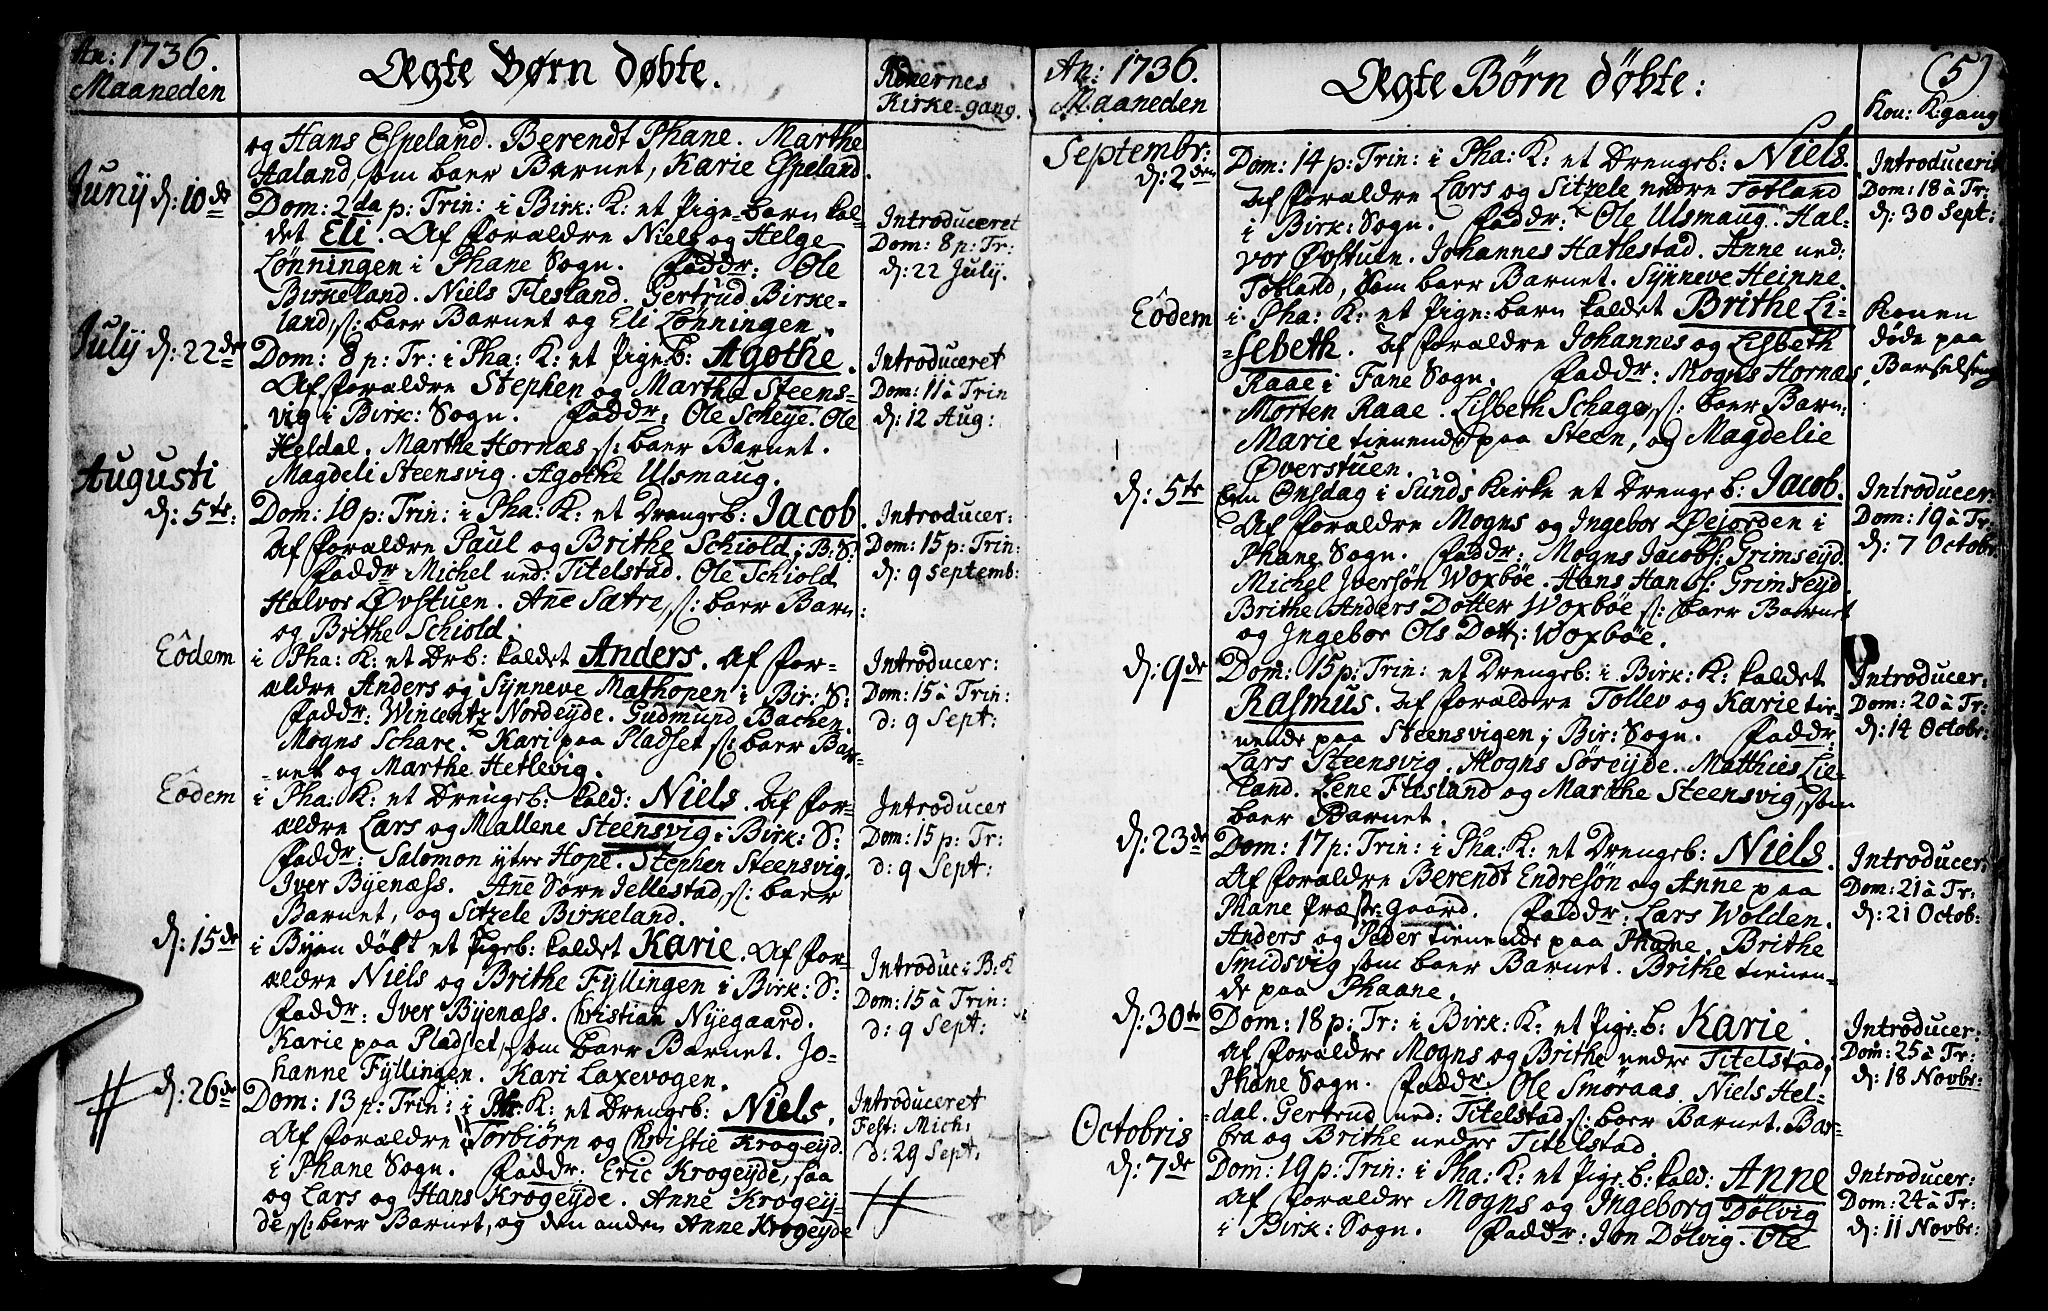 An: 1736.
Maaneden
Ægte Børn døbte.
Konernes
Kirke-gang.
og Hans Espeland. Berendt Phane. Marthe
Haland, som baer Barnet, Karie Espeland.
Junij d: 10de
Dom: 2da p: Trin: i Birk: K: et Pige-barn kal-
det Eli. Af Foraldre Niels og Helge
Lønningen i Phane Sogn. Faddr: Ole
Birkeland. Niels Flesland. Gertrud Birke-
land, s: baer Barnet og Eli Lønningen.
Introduceret
Dom: 8 p: Tr:
d: 22 July.
July d: 22de
Dom: 8 p: Tr: i Pha: K: et Pigeb: Agothe.
Af Foraldre Stephen og Marthe Steens-
vig i Birk: Sogn. Faddr: Ole Scheye. Ole
Heldal. Marthe Hornæs s: baer Barnet.
Magdeli Steensvig. Agothe Ulsmaug.
Introduceret
Dom: 11 à Trin
d: 12 Aug:
Augusti
d: 5te:
Dom: 10 p: Trin: i Pha: K: et Drengeb: Jacob.
Af Foraldre Paul og Brithe Schiold i B: S:
Faddr Michel ned: Titelstad. Ole Schiold
Halvor Øvstuen. Anne Sætre, s: baer Barn:
og Brithe Schiold.
Introducer:
Dom: 15 p: Trin:
d: 9 Septemb:
Eôdem
i Pha: K: et Drb: kaldet Anders. Af For-
ældre Anders og Synneve Mathopen i Bir: S:
Faddr: Wincentz Nordeyde. Gudmund Bachen.
Mogns Schare. Kari paa Pladset s: baer Bar-
-net og Marthe Hetlevig.
Introducer:
Dom: 15 à Trin:
d: 9 Sept:
Eôdem
i Pha: K: et Drengeb: kald: Niels. Af For-
ældre Lars og Mallene Steensvig i Birk: S:
Faddr: Salomon ytre Hope. Stephen Steensvig.
Iver Byenæss. Anne Sørn Jellestad, s: baer
Barnet, og Sitzele Birkeland.
Introducer
Dom: 15 p: Tr:
d: 9 Sept:
d: 15de
i Byen døbt et Pigeb: kaldet Karie. Af For-
ældre Niels og Brithe Fyllingen i Birk: S:
Faddr: Iver Byenæss. Christian Nyegaard.
Karie paa Pladset, som baer Barnet. Jo-
hanne Fyllingen. Kari Laxevogen.
Introduc: B: K
Dom: 15 à Trin:
d: 9 Sept:
d: 26de
Dom: 13 p: Trin: i Pha K: et Drengeb: Niels.
Af Foraldre Torbiørn og Christie Krogeyd.
i Phane Sogn. Faddr: Eric Krogeyde, saa
og Lars og Hans Krogeyde. Anne Krogey-
de s: baer Barnet, og den anden Anne Krogeyde
Introduceret
Fest: Mich:
d: 29 Sept.
An: 1736.
Maaneden
Ægte Børn døbte:
(5)
Kon: K:gang
Septembr:
d: 2den
Dom: 14 p: Trin: i Pha: K: et Drengeb: Niels.
Af Foraldre Lars og Sitzele nedre Totland
i Birk: Sogn. Faddr: Ole Ulsmaug. Hal-
vor Øvstuen. Johannes Hatlestad. Anne ned:
Totland, som baer Barnet. Synneve Heinne.
Introducerit
Dom: 18 à Tr:
d: 30 Sept:
Eôdem
i Pha: K: et Pige-barn kaldet Brithe Li-
-sebeth. Af Foraldre Johannes og Lisbeth
Raae i Fane Sogn. Faddr: Mogns Hornæs
Morten Raae. Lisbeth Schage, s: baer Barn:
Marie tienende paa Steen, og Magdelie
Øverstuen.
Konen
døde paa
Barselseng
d: 5te
Om Onsdag i Sunds Kirke et Drengeb: Jacob.
Af Foraldre Mogns og Ingebor Øejorden i
Phane Sogn. Faddr: Mogns Jacobs: Grimseyd.
Michel Iversøn Woxbøe. Hans Hans: Grimseyd.
Brithe Anders Dotter Woxbøe s: baer Barnet
og Ingebor Ols Dott: Woxbøe.
Introducer:
Dom: 19 à Tr:
d: 7 Octobr:
d: 9de
Dom: 15 p: Trin: et Drengeb: i Birk: K: kaldet
Rasmus. Af Foraldre Tollev og Karie tie-
nende paa Steensvigen i Bir: Sogn. Faddr:
Lars Steensvig. Mogns Søreyde. Matthies Lie-
land. Lene Flesland og Marthe Steensvig, som
baer Barnet.
Introducer:
Dom: 20 à Tr:
d: 14 Octobr:
d: 23de
Dom: 17 p: Trin: i Pha: K: et Drengeb: Niels.
Af Foraldre Berendt Endresøn og Anne paa
Phane Præste-gaard. Faddr: Lars Wolden.
Anders og Peder tienende paa Phane. Brithe
Smidsvig som baer Barnet. Brithe tienen-
de paa Phaane.
Introducer:
Dom: 21 à Tr:
d: 21 Octob:
d: 30te
Dom: 18 p: Tr: i Birk: K: et Pige-b: Karie.
Af Foraldre Mogns og Brithe nedre Titelstad,
Phane Sogn. Faddr. Ole Smøraas. Niels Hel-
dal. Gertrud ned: Titelstad s: baer Barnet. Bar-
bra og Brithe nedre Titelstad
Introducer:
Dom: 25 à Tr:
d: 18 Novbr:
Octobris
d: 7de
Dom: 19 p: Trin: i Pha: K: et Pige-b: kald: Anne
Af Foraldre Mogns og Ingeborg Dølvig
i Birk: Sogn. Faddr: Jon Dølvig. Ole
Introducer:
Dom: 24 à Tr:
d: 11 Novbr: